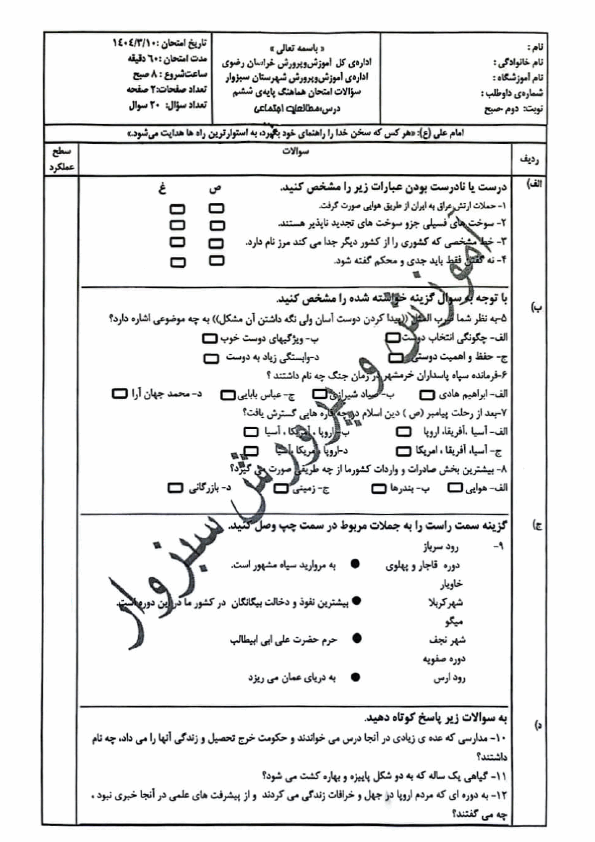 نام :
نام خانوادگی :
نام آموزشگاه :
شماره‌ی داوطلب :
نوبت: دوم -صبح
« باسمه تعالی »
اداره‌ی کل آموزش‌وپرورش خراسان رضوی
اداره‌ی آموزش‌وپرورش شهرستان سبزوار
سؤالات امتحان هماهنگ پایه‌ی ششم
درس:مطالعات اجتماعی
تاریخ امتحان :۱۴۰۴/۳/۱۰
مدت امتحان :۶۰ دقیقه
ساعت‌شروع : ۸ صبح
تعداد صفحات:۲ صفحه
تعداد سؤال: ۲۰ سوال
امام علی (ع): «هر کس که سخن خدا را راهنمای خود بگیرد، به استوارترین راه ها هدایت می‌شود.»
ردیف
سوالات
سطح عملکرد
الف)
درست یا نادرست بودن عبارات زیر را مشخص کنید. ص غ
۱- حملات ارتش عراق به ایران از طریق هوایی صورت گرفت.
۲- سوخت های فسیلی جزو سوخت های تجدید ناپذیر هستند.
۳- خط مشخصی که کشوری را از کشور دیگر جدا می کند مرز نام دارد.
۴- نه گفتن فقط باید جدی و محکم گفته شود.
ب)
با توجه به سوال گزینه خواسته شده را مشخص کنید.
۵-به نظر شما ضرب المثل ((پیدا کردن دوست آسان ولی نگه داشتن آن مشکل)) به چه موضوعی اشاره دارد؟
الف- چگونگی انتخاب دوست ب- ویژگیهای دوست خوب
ج- حفظ و اهمیت دوستی د-وابستگی زیاد به دوست
۶-فرمانده سپاه پاسداران خرمشهر در زمان جنگ چه نام داشتند ؟
الف- ابراهیم هادی ب- صیاد شیرازی ج- عباس بابایی د- محمد جهان آرا
۷-بعد از رحلت پیامبر (ص ) دین اسلام در چه قاره هایی گسترش یافت؟
الف- آسیا ،آفریقا، اروپا ب- اروپا ، آمریکا ، آسیا
ج- آسیا، آفریقا ، امریکا د-اروپا ، آمریکا ، آسیا
۸- بیشترین بخش صادرات و واردات کشورما از چه طریقی صورت می گیرد؟
الف- هوایی ب- بندرها ج- زمینی د- بازرگانی
ج)
گزینه سمت راست را به جملات مربوط در سمت چپ وصل کنید.
۹- رود سرباز
دوره قاجار و پهلوی به مروارید سیاه مشهور است.
خاویار
شهرکربلا بیشترین نفوذ و دخالت بیگانگان در کشور ما در این دوره است.
میگو
شهر نجف حرم حضرت علی ابی ابیطالب
دوره صفویه
رود ارس به دریای عمان می ریزد
د)
به سوالات زیر پاسخ کوتاه دهید.
۱۰- مدارسی که عده ی زیادی در آنجا درس می خواندند و حکومت خرج تحصیل و زندگی آنها را می داد، چه نام
داشتند؟
۱۱- گیاهی یک ساله که به دو شکل پاییزه و بهاره کشت می شود؟
۱۲- به دوره ای که مردم اروپا در جهل و خرافات زندگی می کردند و از پیشرفت های علمی در آنجا خبری نبود ،
چه می گفتند؟
آموزش و پرورش سبزوار